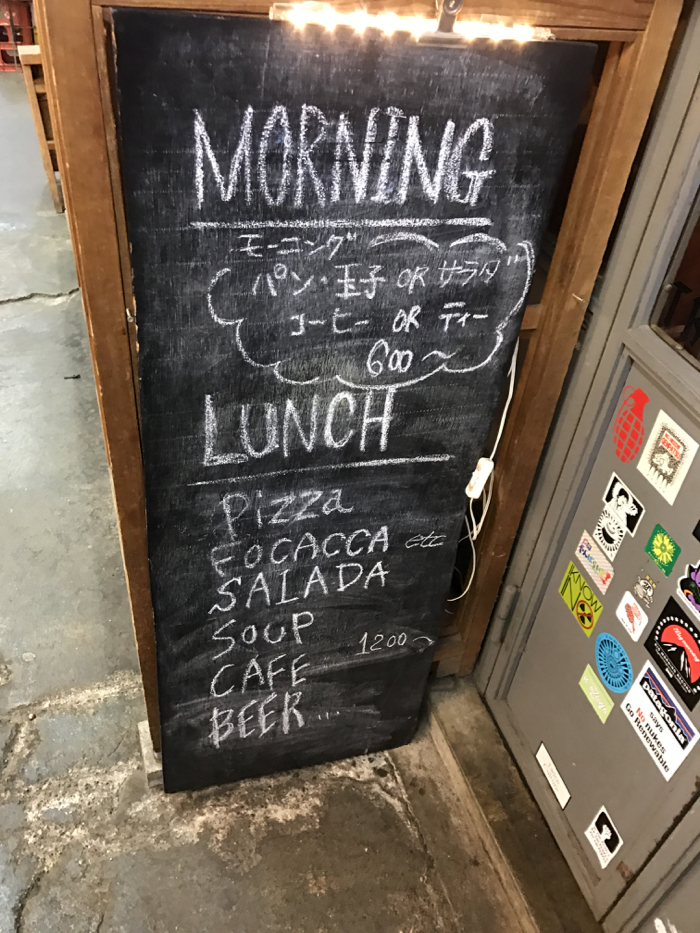 MORNING
モーニング
パン・玉子 OR サラダ
コーヒー OR ティー
600〜
LUNCH
Pizza
FOCACCA etc
SALADA
SOUP
1200〜
CAFE
BEER...
KNOW
NO
patagonia
says
No nukes
Go Renewable